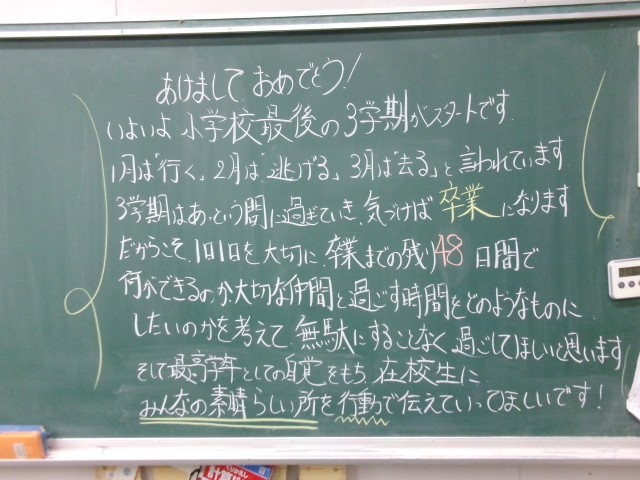 あけまして おめでとう!
いよいよ 小学校最後の3学期がスタートです
1月は「行く」、2月は「逃げる」、3月は「去る」と言われています
3学期はあっという間に過ぎていき、気づけば 卒業 になります
だからこそ、1日1日を大切に、卒業までの残り48日間で
何ができるのか、大切な仲間と過ごす時間をどのようなものに
したいのかを考えて、無駄にすることなく過ごしてほしいと思います
そして最高学年としての自覚をもち、在校生に
みんなの素晴らしい所を行動で伝えていってほしいです!